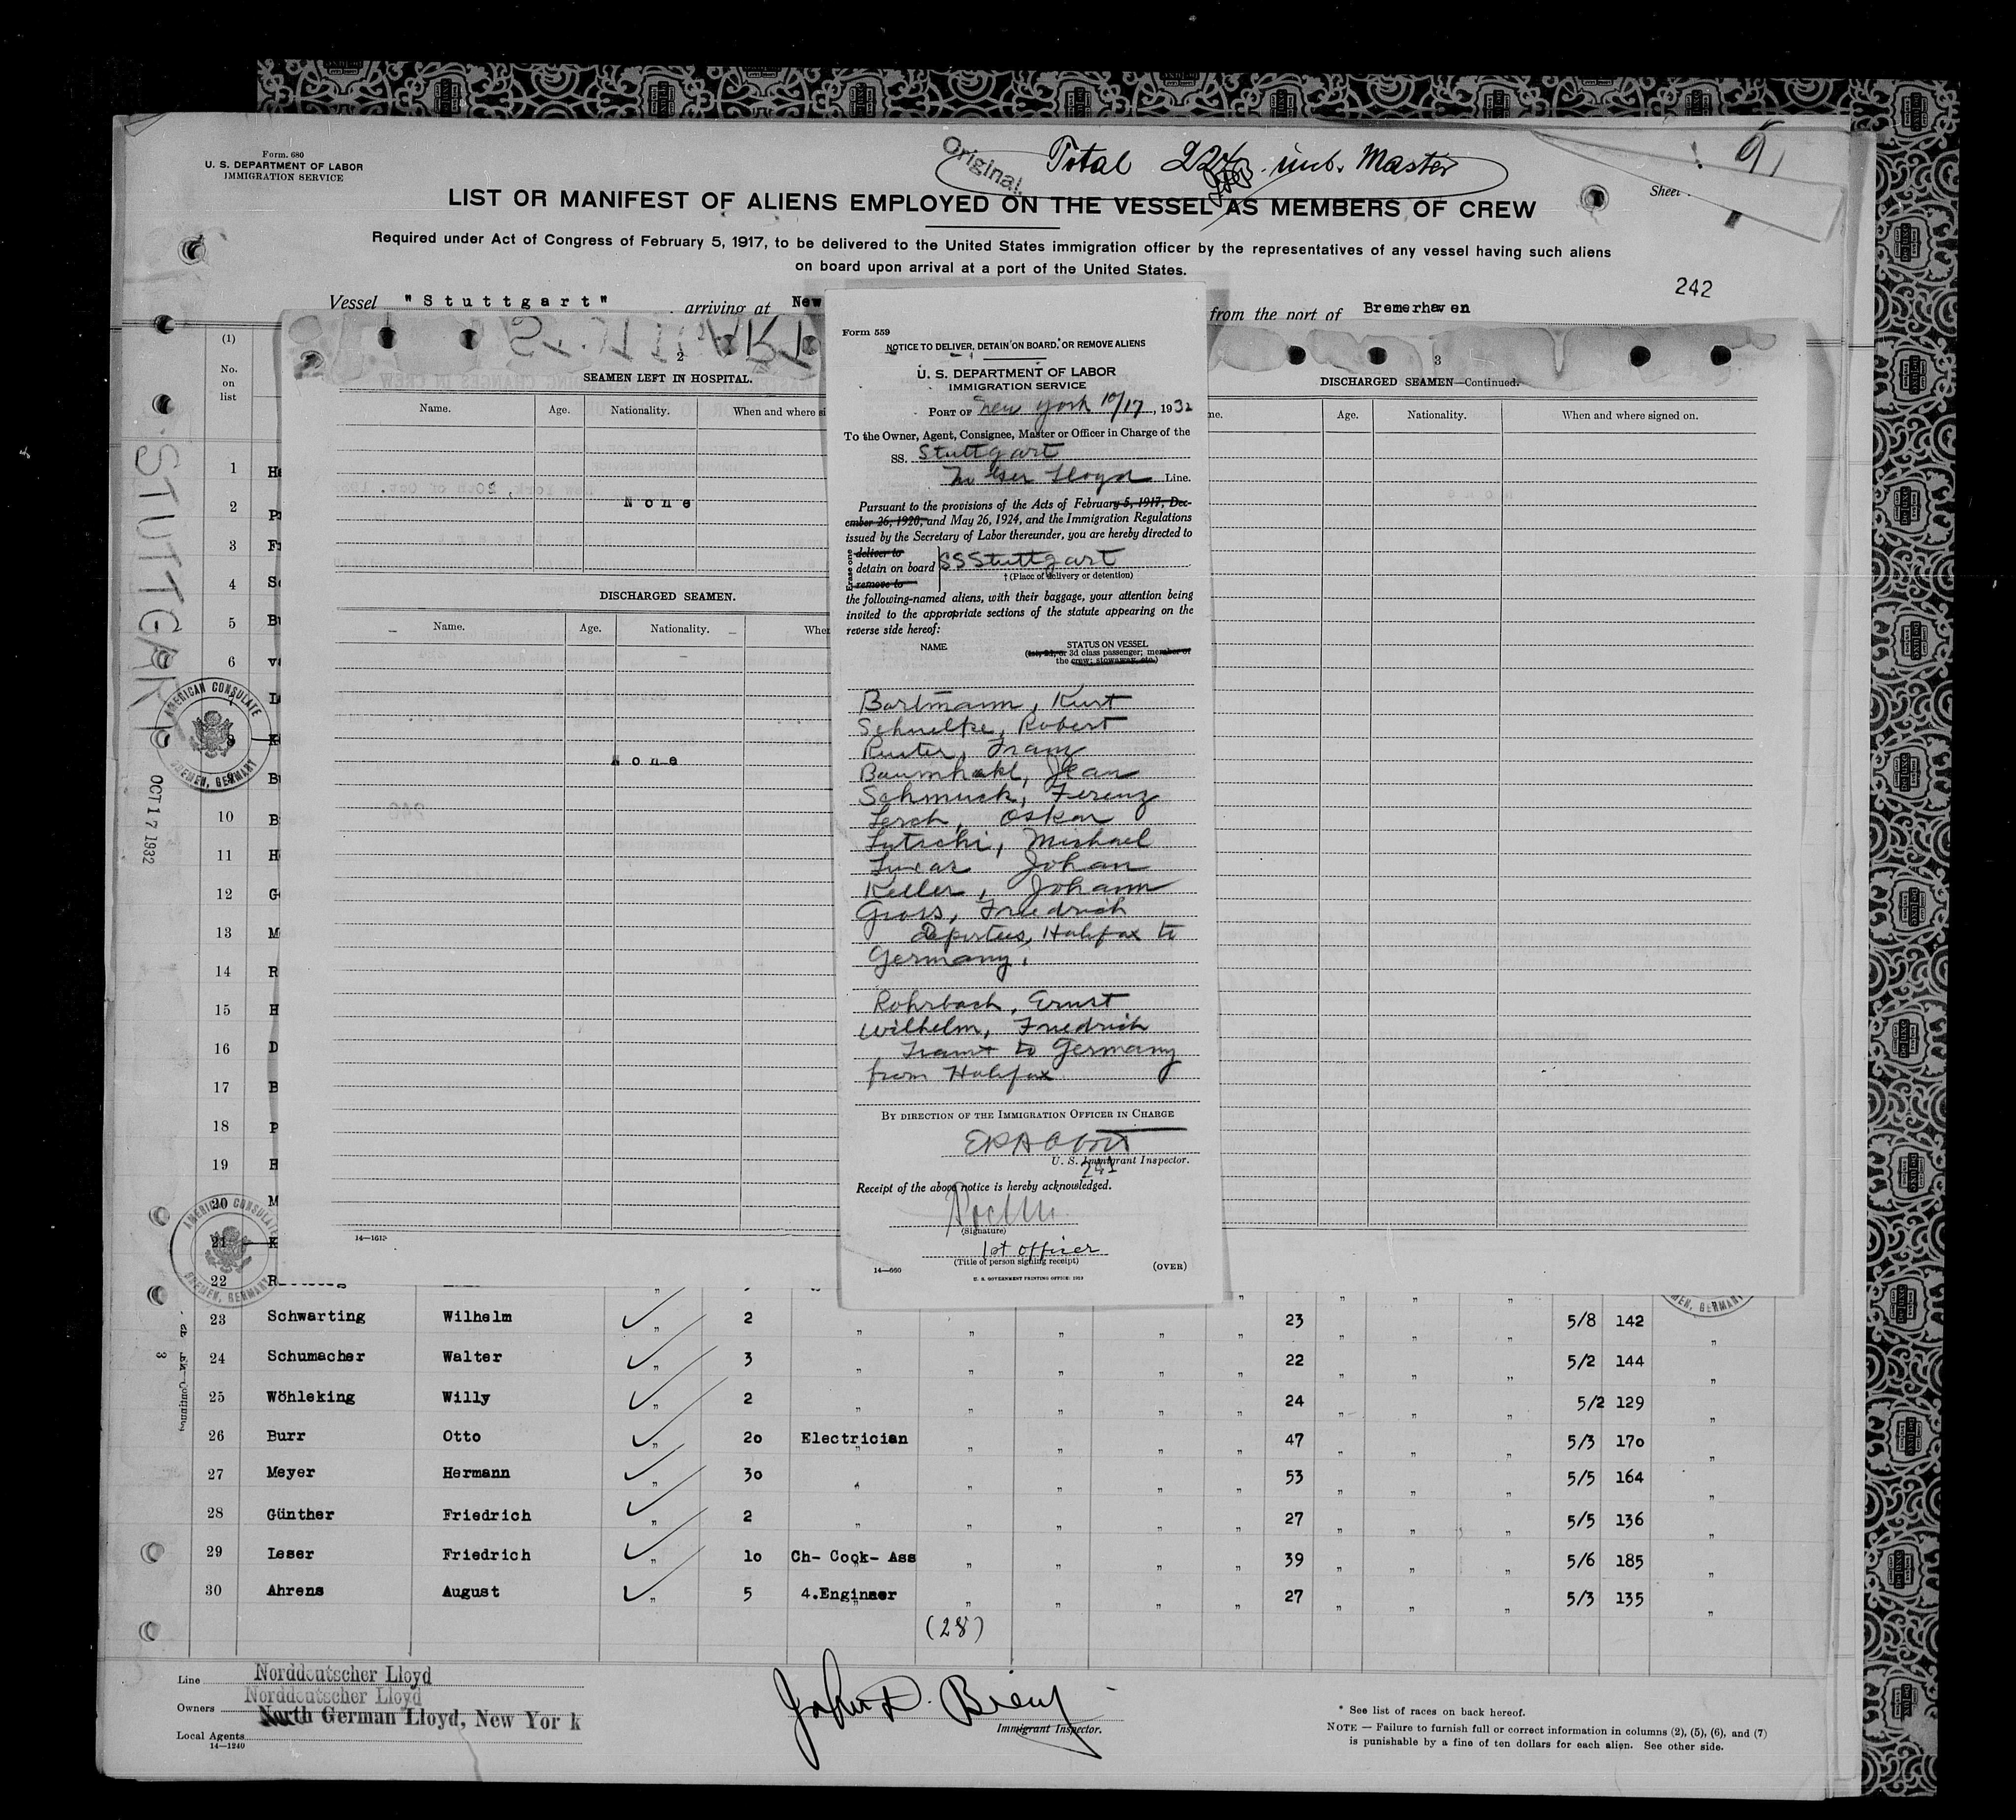 Form. 680
U. S. DEPARTMENT OF LABOR
IMMIGRATION SERVICE
Original.
Total inc. Master
LIST OR MANIFEST OF ALIENS EMPLOYED ON THE VESSEL AS MEMBERS OF CREW
Required under Act of Congress of February 5, 1917, to be delivered to the United States immigration officer by the representatives of any vessel having such aliens
on board upon arrival at a port of the United States.
242
Vessel "Stuttgart" arriving at New from the port of Bremerhaven
(1)
No.
on
list
STUTTGART
AMERICAN CONSULATE
BREMEN, GERMANY
OCT 17 1932
2
SEAMEN LEFT IN HOSPITAL.
Name. Age. Nationality. When and where si
None
DISCHARGED SEAMEN.
Name. Age. Nationality. Whe
None
14—1613
3
DISCHARGED SEAMEN—Continued.
me. Age. Nationality. When and where signed on.
Form 559
NOTICE TO DELIVER, DETAIN ON BOARD, OR REMOVE ALIENS
U. S. DEPARTMENT OF LABOR
IMMIGRATION SERVICE
PORT OF New York 10/17, 1932
To the Owner, Agent, Consignee, Master or Officer in Charge of the
SS. Stuttgart
Lloyd Line.
Pursuant to the provisions of the Acts of February 5, 1917, Dec-
ember 26, 1920, and May 26, 1924, and the Immigration Regulations
issued by the Secretary of Labor thereunder, you are hereby directed to
Erase one
deliver to
detain on board SS Stuttgart
remove to
† (Place of delivery or detention)
the following-named aliens, with their baggage, your attention being
invited to the appropriate sections of the statute appearing on the
reverse side hereof:
NAME STATUS ON VESSEL
(1st, 2d, or 3d class passenger; member of
the crew; stowaway, etc.)
Bartmann, Kurt
Schnelke, Robert
Reuter, Franz
Baumhakl, Jean
Schmuck, Ferenz
Lerch, Oskar
Lutschi, Michael
Johan
Keller, Johann
Gross, Friedrich
Deportees, Halifax to
Germany.
Rohrbach, Ernst
Wilhelm, Friedrich
Transit to Germany
from Halifax
BY DIRECTION OF THE IMMIGRATION OFFICER IN CHARGE
U. S. Immigrant Inspector.
241
Receipt of the above notice is hereby acknowledged.
(Signature)
1st officer
(Title of person signing receipt)
14—660 (OVER)
U. S. GOVERNMENT PRINTING OFFICE: 1929
1
2
3
4
5
6
9
10
11
12
13
14
15
16
17
18
19
20
21
22
AMERICAN CONSULATE
BREMEN, GERMANY
23 Schwarting Wilhelm " 2 " " " " " 23 " " " 5/8 142 "
24 Schumacher Walter " 3 " " " " " 22 " " " 5/2 144 "
25 Wöhleking Willy " 2 " " " " " 24 " " " 5/2 129 "
26 Burr Otto " 20 Electrician " " " " 47 " " " 5/3 170 "
27 Meyer Hermann " 30 " " " " " 53 " " " 5/5 164 "
28 Günther Friedrich " 2 " " " " " 27 " " " 5/5 136 "
29 Leser Friedrich " 10 Ch- Cook- Ass " " " " 39 " " " 5/6 185 "
30 Ahrens August " 5 4.Engineer " " " " 27 " " " 5/3 135 "
(28)
Line Norddeutscher Lloyd
Owners Norddeutscher Lloyd
Local Agents North German Lloyd, New York
14—1240
John D.
Immigrant Inspector.
* See list of races on back hereof.
NOTE — Failure to furnish full or correct information in columns (2), (5), (6), and (7)
is punishable by a fine of ten dollars for each alien. See other side.